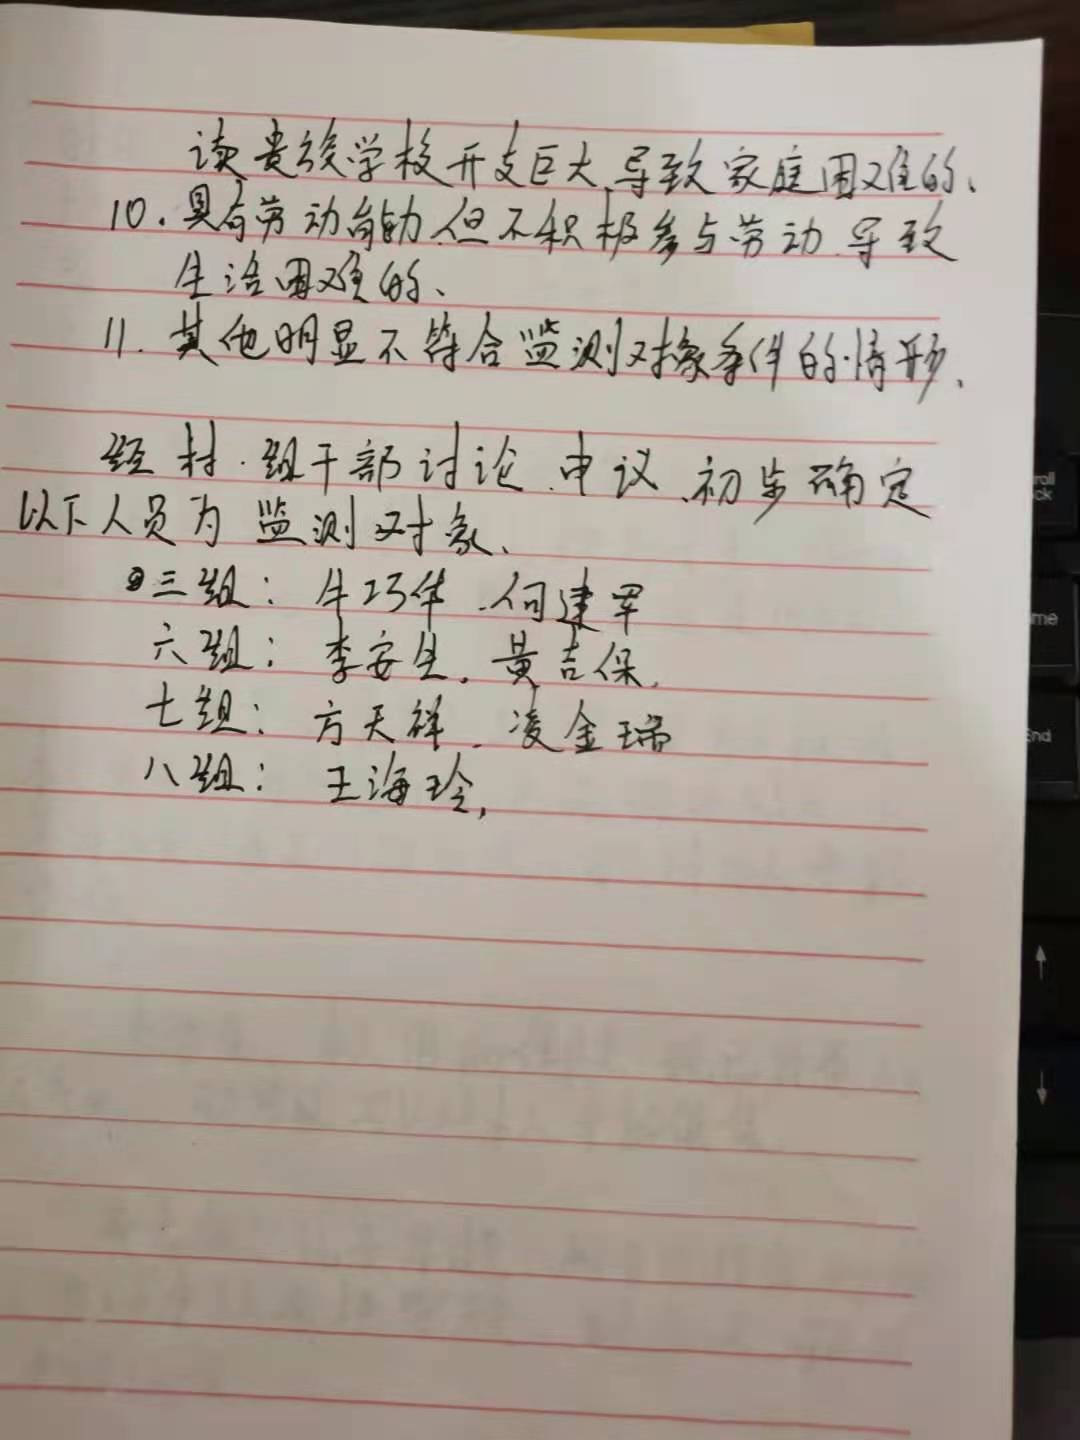 读贵族学校开支巨大,导致家庭困难的、
10.具有劳动能力,但不积极参与劳动、导致
生活困难的、
11.其他明显不符合监测对象条件的情形、
经村.组干部讨论、申议、初步确定
以下人员为监测对象、
三组:牛巧华、何建军
六组:李安生、黄吉保、
七组:方天祥、凌金瑞
八组:王海玲,
roll
ck
me
End
↑
↓